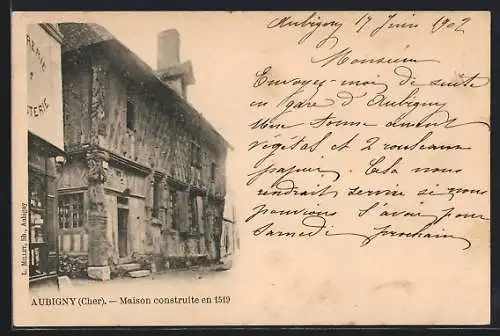 Aubigny 17 Juin 1902
Monsieur
Envoyez-moi de suite
en gare d'Aubigny
Une tonne ciment
végétal et 2 rouleaux
papier. Cela nous
rendrait service si nous
pouvions l'avoir pour
Samedi prochain
TERIE
L. MILLET, lib., Aubigny
AUBIGNY (Cher). — Maison construite en 1519